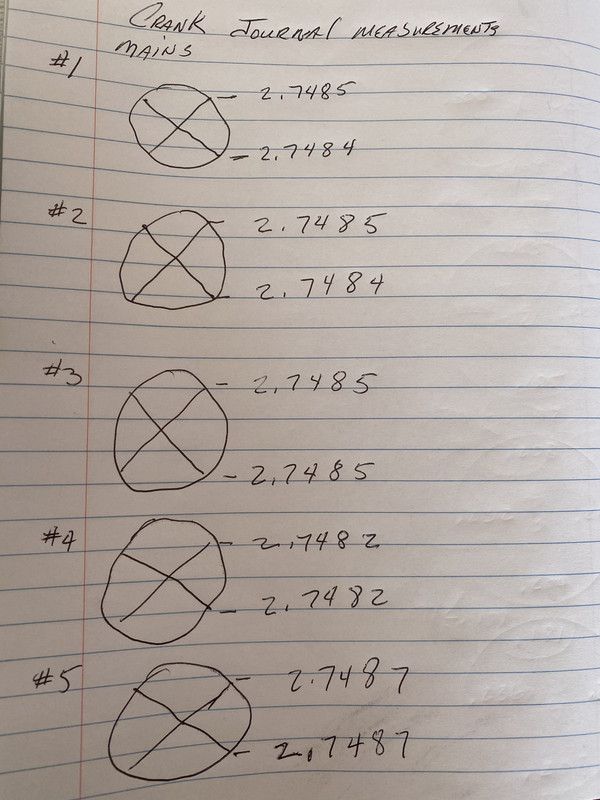 CRANK JOURNAL MEASUREMENTS
MAINS
#1
- 2.7485
- 2.7484
#2
- 2.7485
- 2.7484
#3
- 2.7485
- 2.7485
#4
- 2.7482
- 2.7482
#5
- 2.7487
- 2.7487